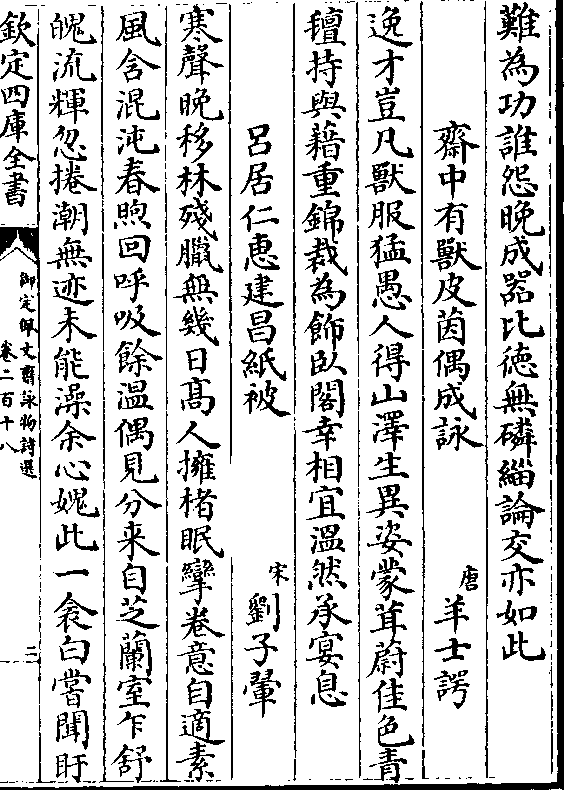 難為功誰怨晚成器比德無磷緇論交亦如此
齋中有獸皮茵偶成詠 唐 羊士諤
逸才豈凡獸服猛愚人得山澤生異姿蒙茸蔚佳色青
氊持與藉重錦裁為飾臥閣幸相宜溫然承宴息
呂居仁惠建昌紙被 宋 劉子翬
寒聲晚移林殘臘無幾日髙人擁楮眠攣卷意自適素
風含混沌春煦回呼吸餘溫偶見分来自芝蘭室乍舒
魄流輝忽捲潮無迹未能澡余心媿此一衾白嘗聞盱
欽定四庫全書
御定佩文齋詠物詩選
卷二百十八
三